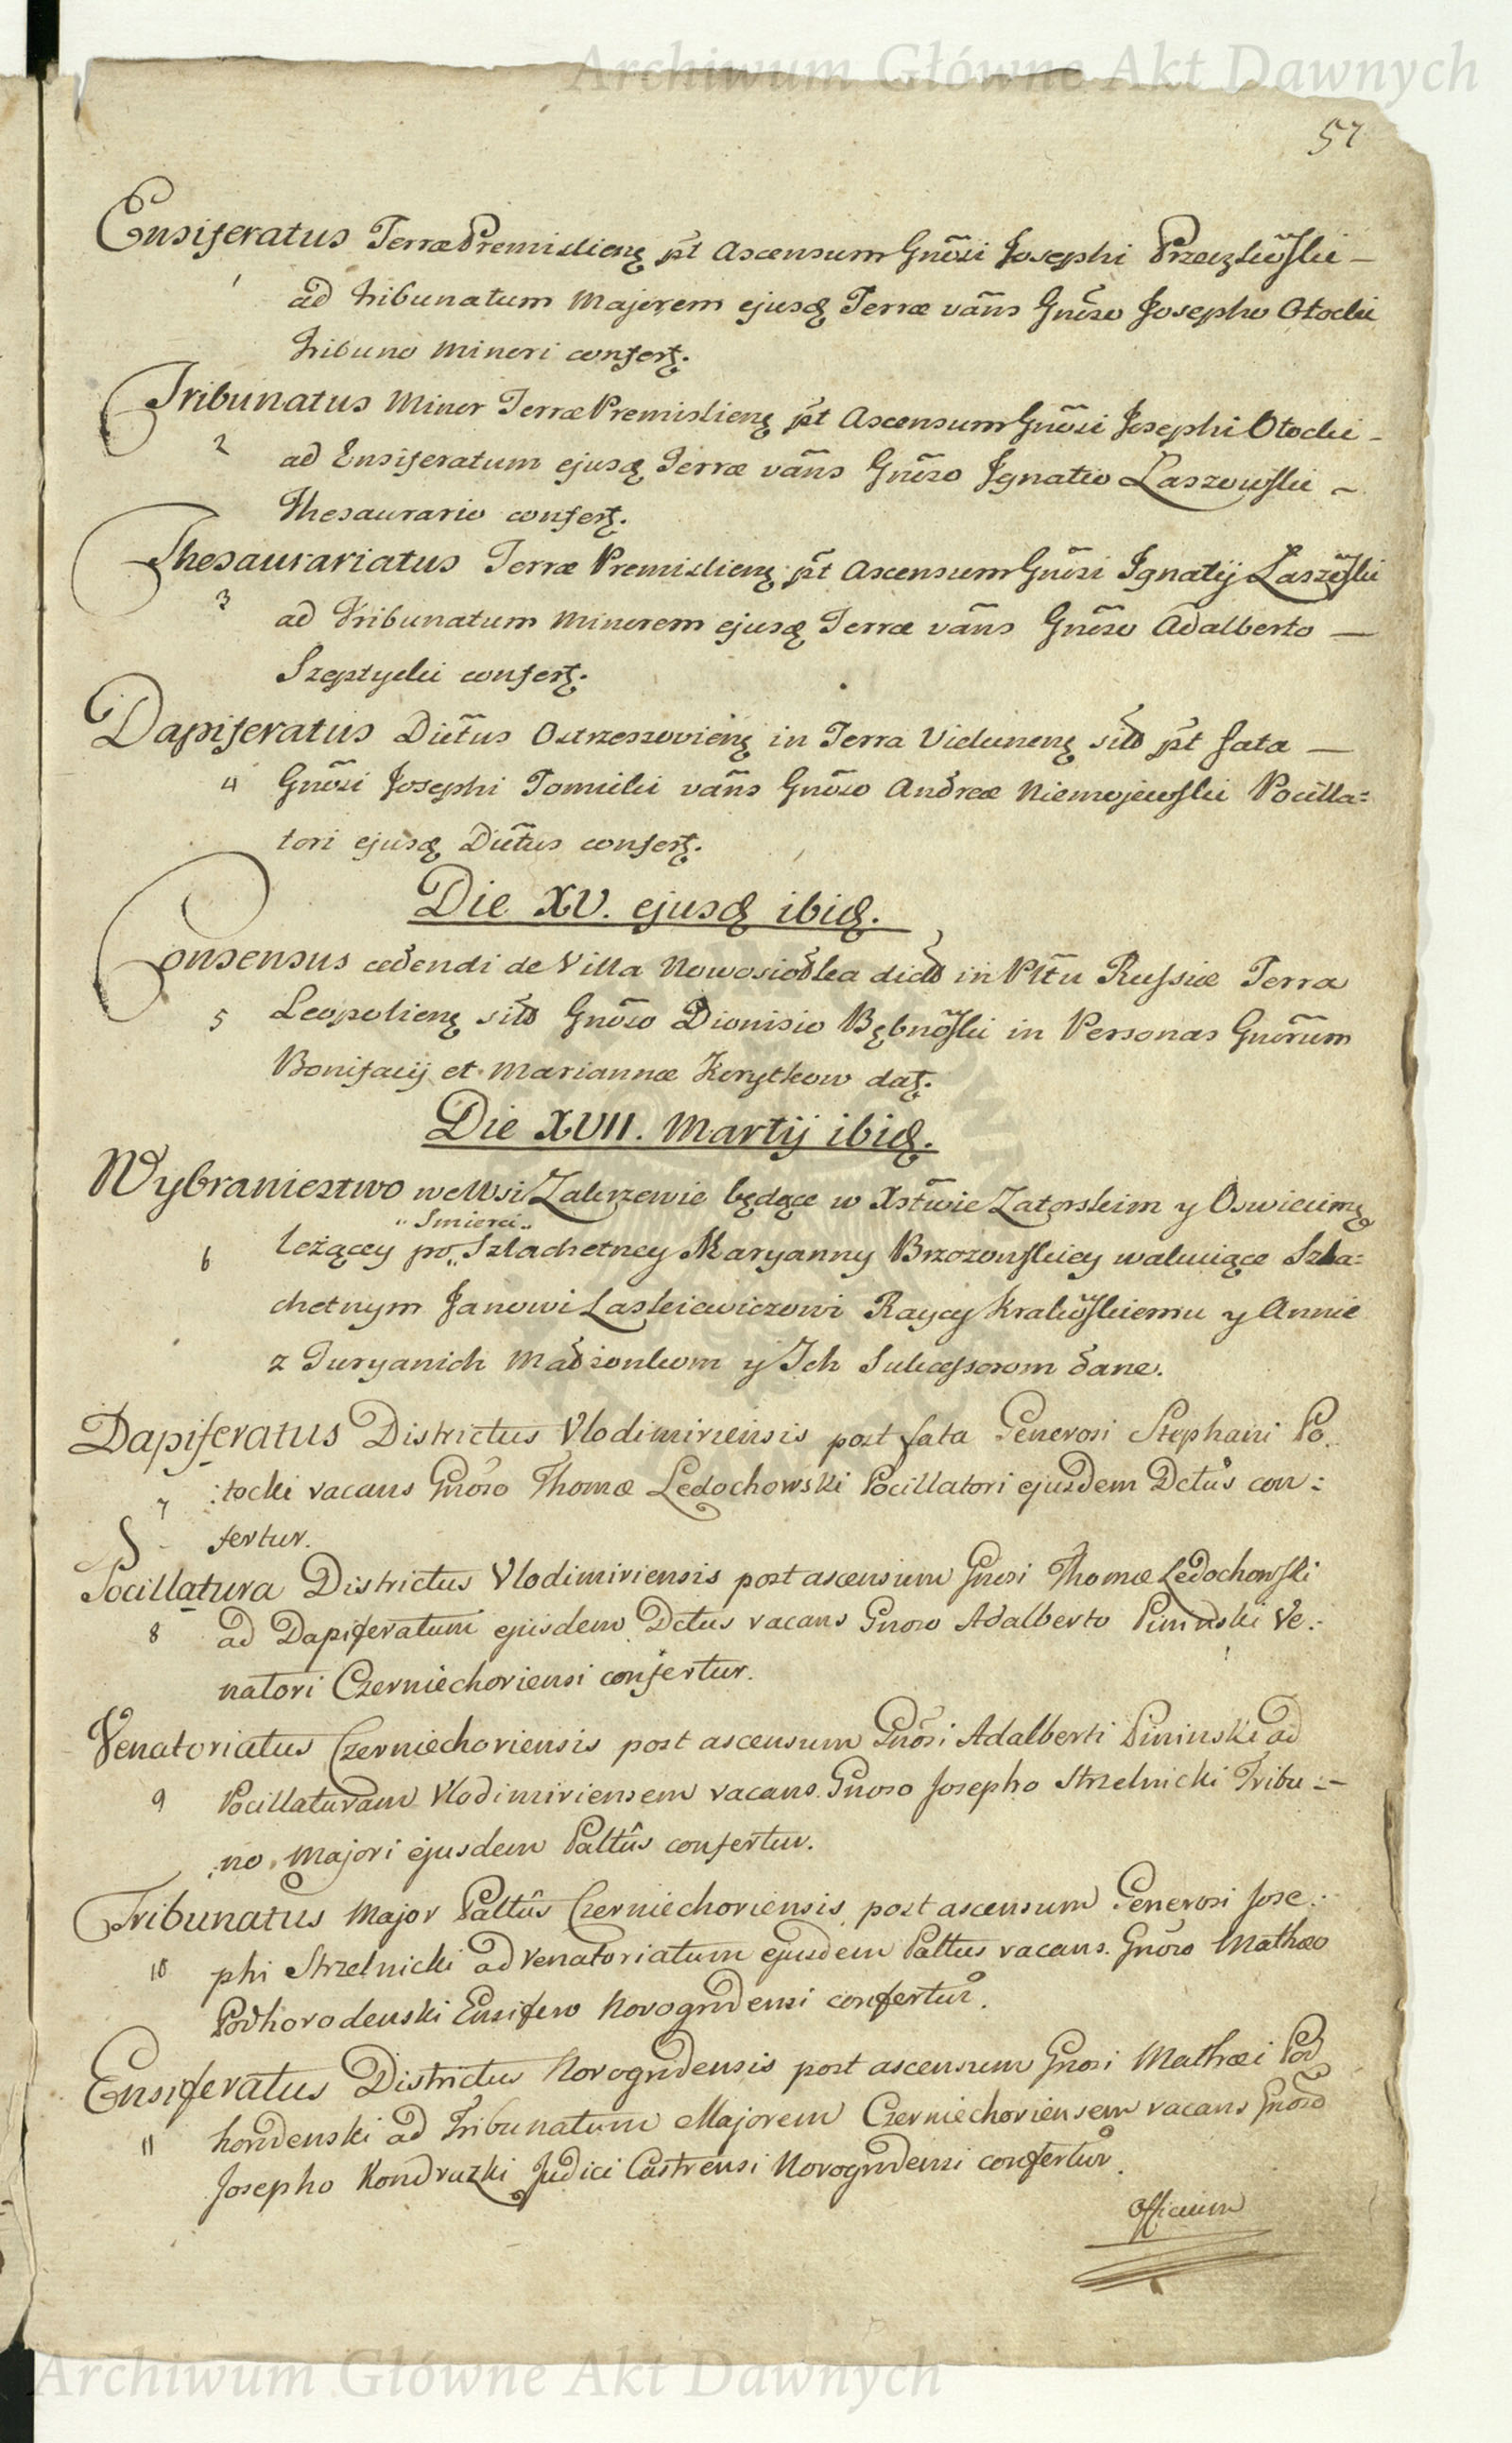 Archiwum Główne Akt Dawnych
57
Ensiferatus Terræ Premislienę p̃t Ascensum Gnõsi Josephi Przeczkõwski —
1
ad Tribunatum Majorem ejusdę Terræ vãns Gnõso Josepho Otocki
Tribuno Minori confertę.
Tribunatus Minor Terræ Premislienę p̃t Ascensum Gnõsi Josephi Otocki –
2
ad Ensiferatum ejusdę Terræ vãns Gnõso Ignatio Łaszowski –
Thesaurario confertę.
Thesaurariatus Terræ Premislienę p̃t Ascensum Gnõsi Ignatij Łaszõwski
3
ad Tribunatum Minorem ejusdę Terræ vãns Gnõso Adalberto —
Szeptycki confertę.
Dapiferatus Dictũs Ostrzeszovienę in Terra Vielunenę sit̃ p̃t fata —
4 Gnõsi Josephi Tomicki vãns Gnõso Andreæ Niemojewski Pocilla=
tori ejusdę Dictũs confertę.
Die XV. ejusdę ibidę.
Consensus cedendi de Villa Nowosiodlka dict̃ in Pltũ Russiæ Terra
5 Leopolienę sit̃ Gnõso Dionisio Bębnõwski in Personas Gnõrum
Bonifacij et Mariannæ Korytkow datę.
Die XVII. Martij ibidę.
Wybraniectwo we Wsi Zakrzewie będące w Xstwie Zatorskim y Oswiecimę
„Smierci„
6 leżącey po„ Szlachetney Maryanny Brzozowskiey wakuiące Szla=
chetnym Janowi Laskiewiczowi Raycy Krakõwskiemu y Annie
z Turyanich Madżonkom y Jch Sukcessorom dane.
Dapiferatus Districtus Vlodimiriensis post fata Generosi Stephani Po.
7 :tocki vacans Gnõso Thomæ Ledochowski Pocillatori ejusdem Dctus con:
fertur.
Pocillatura Districtus Vlodimiriensis post ascensum Gnosi Thomæ Ledochowski
8 ad Dapiferatum ejusdem Dctus vacans Gnoso Adalberto Pininski Ve:
natori Czerniechoviensi confertur.
Venatoriatus Czerniechoviensis post ascensum Gnõsi Adalberti Pininski ad
9 Pocillaturam Vlodimiriensem vacans Gnoso Josepho Strzelnicki Tribu:–
:no Majori ejusdem Paltûs confertur.
Tribunatus Major Paltûs Czerniechoviensis post ascensum Generosi Jose:
10 phi Strzelnicki ad Venatoriatum ejusdem Paltus vacans Gnõso Mathæo
Podhorodenski Ensifero Novogrodensi confertur.
Ensiferatus Districtus Novogrodensis post ascensum Gnosi Mathæi Pod
11 horodenski ad Tribunatum Majorem Czerniechoviensem vacans Gnõso
Josepho Kondrazki Judici Castrensi Novogrodensi confertur.
Officium
Archiwum Główne Akt Dawnych